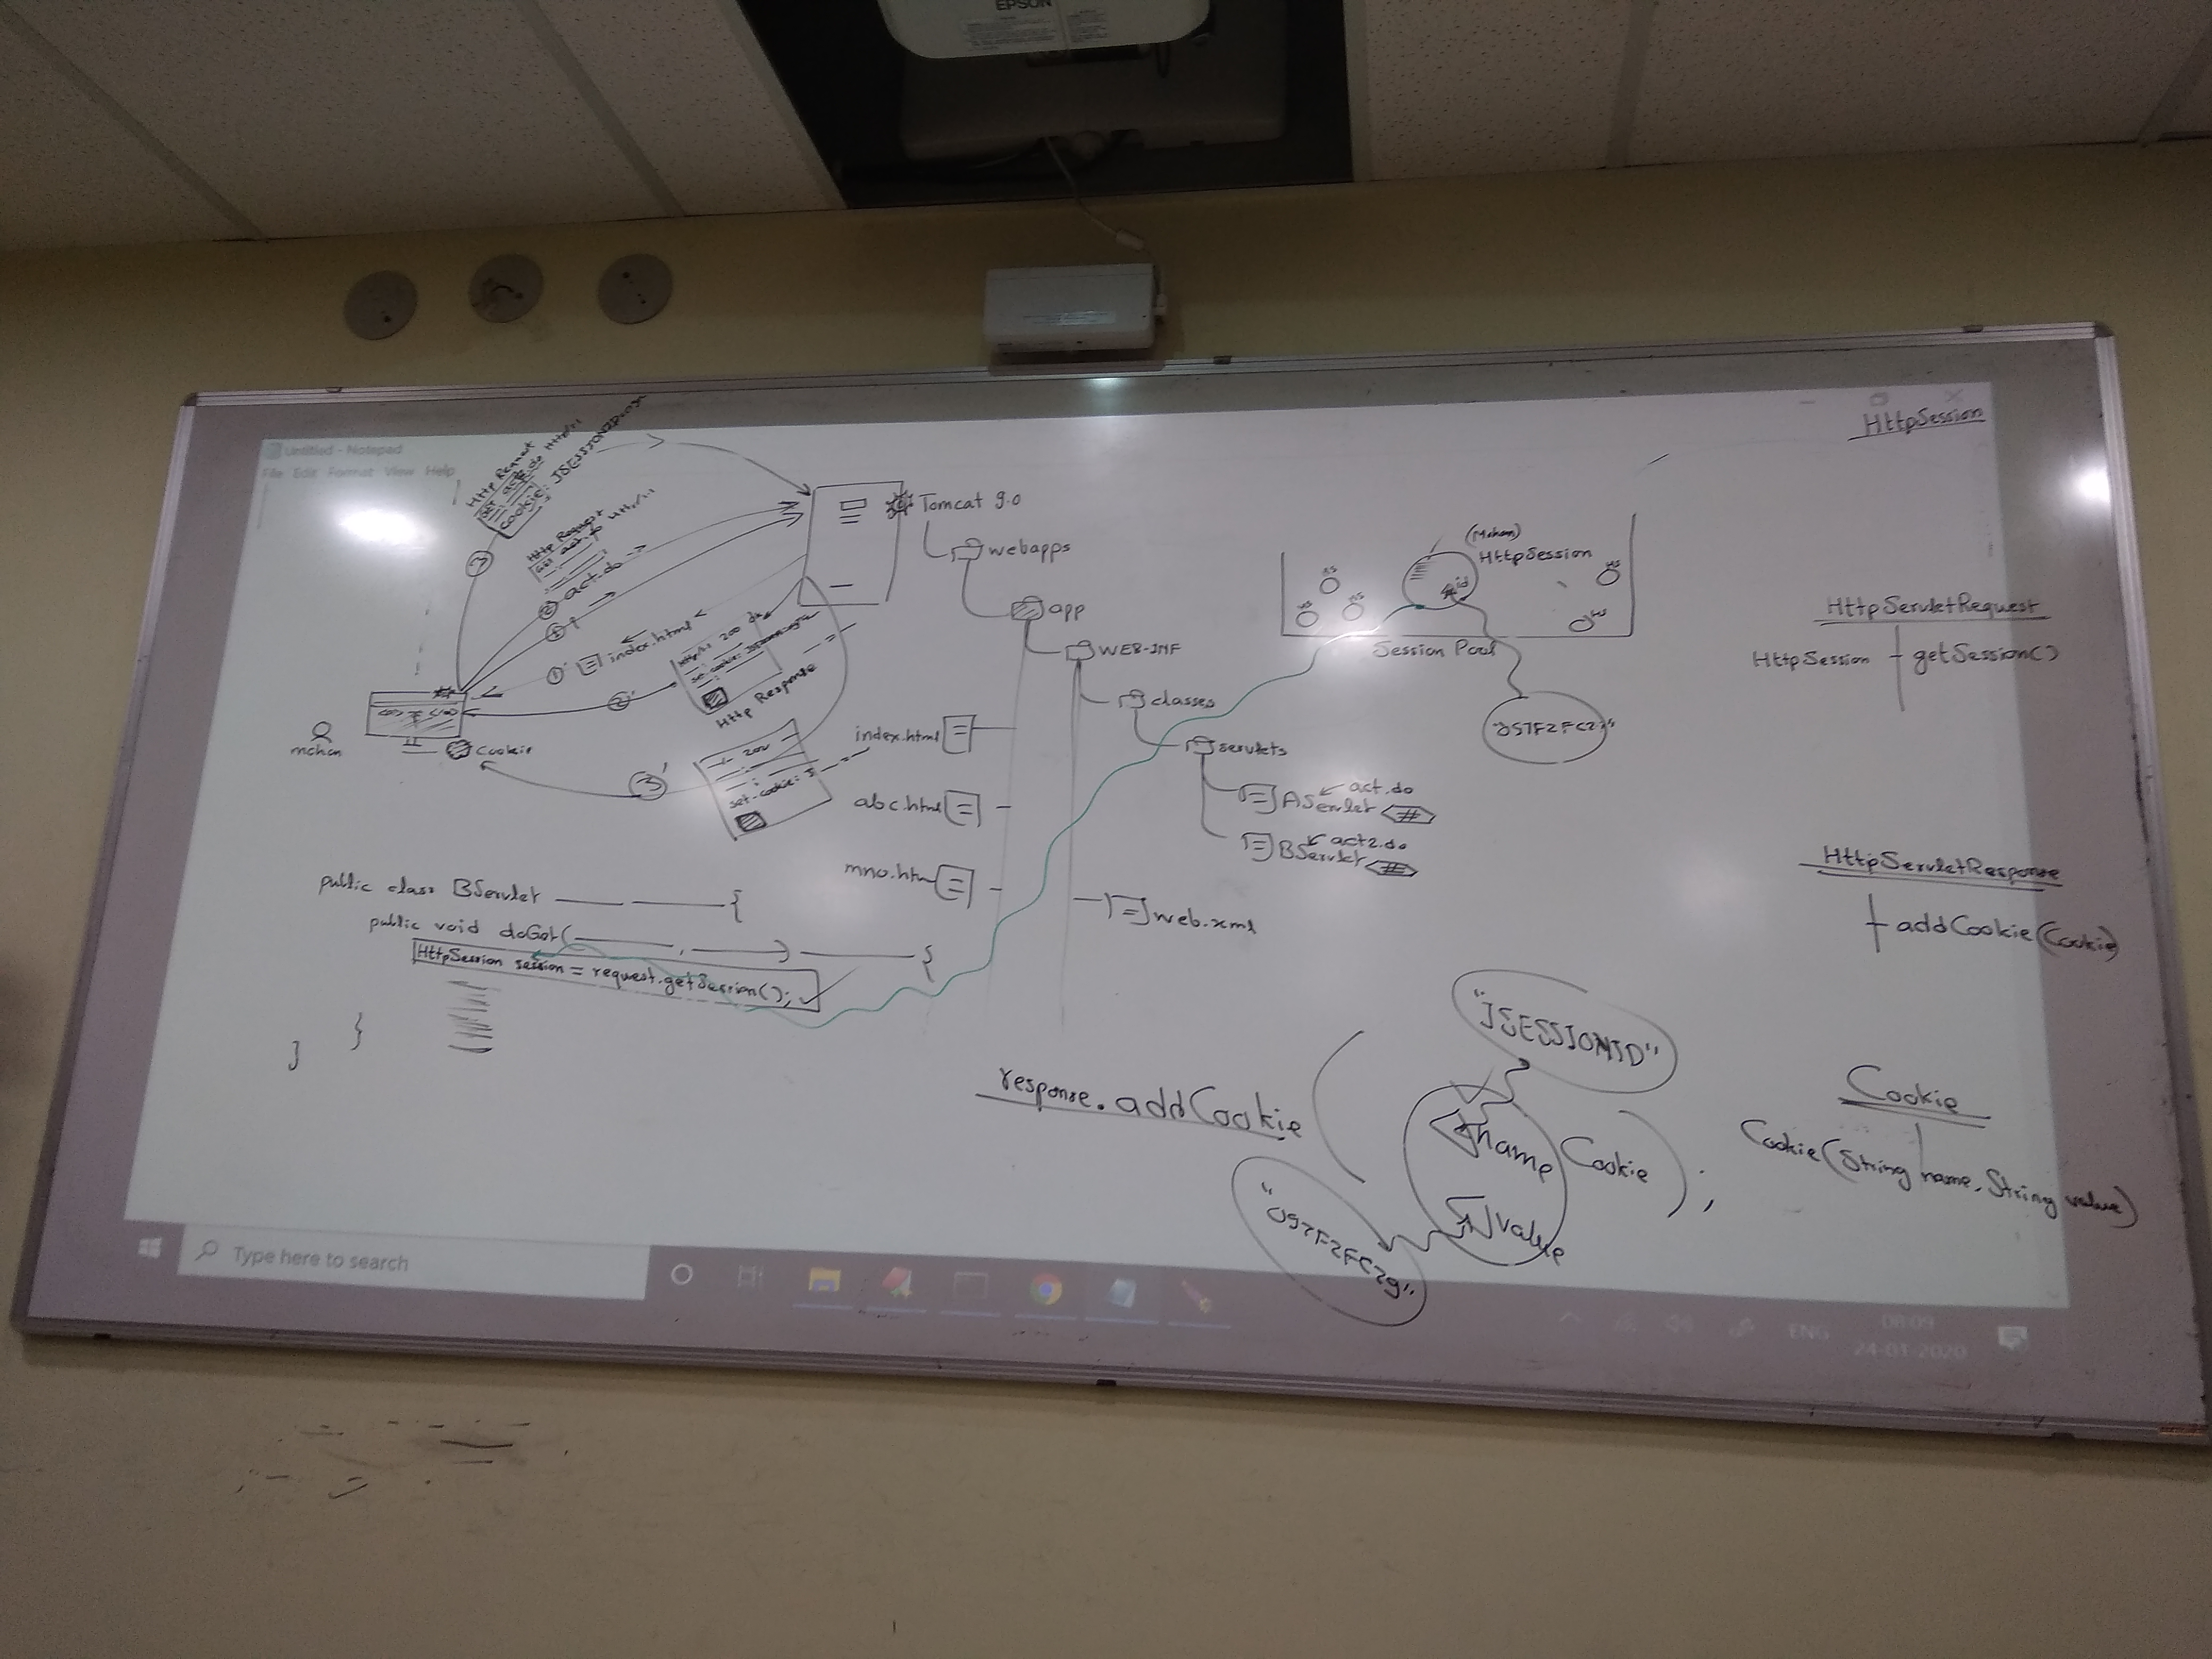 EPSON
Untitled - Notepad
File Edit Format View Help
HttpSession
Http Request
GET act2.do Http/1.1
Cookie: JSESSIONID=
3
Http Request
GET act.do Http/1.1
2 act.do
1
1' index.html
2'
Http/1.1 200 OK
Http Response
Tomcat 9.0
webapps
app
WEB-INF
classes
servlets
act.do
AServlet
act2.do
BServlet
web.xml
index.html
abc.html
mno.htm
mohan
Cookie
3'
200
set-cookie: J
(Mohan)
HttpSession
id
HS
HS
HS
HS
HS
Session Pool
HttpServletRequest
HttpSession getSession()
HttpServletResponse
addCookie(Cookie)
public class BServlet {
public void doGet( , ) {
HttpSession session = request.getSession();
}
}
"JSESSIONID"
response.addCookie ( name Cookie );
value
Cookie
Cookie(String name, String value)
Type here to search
ENG
08:09
24-01-2020